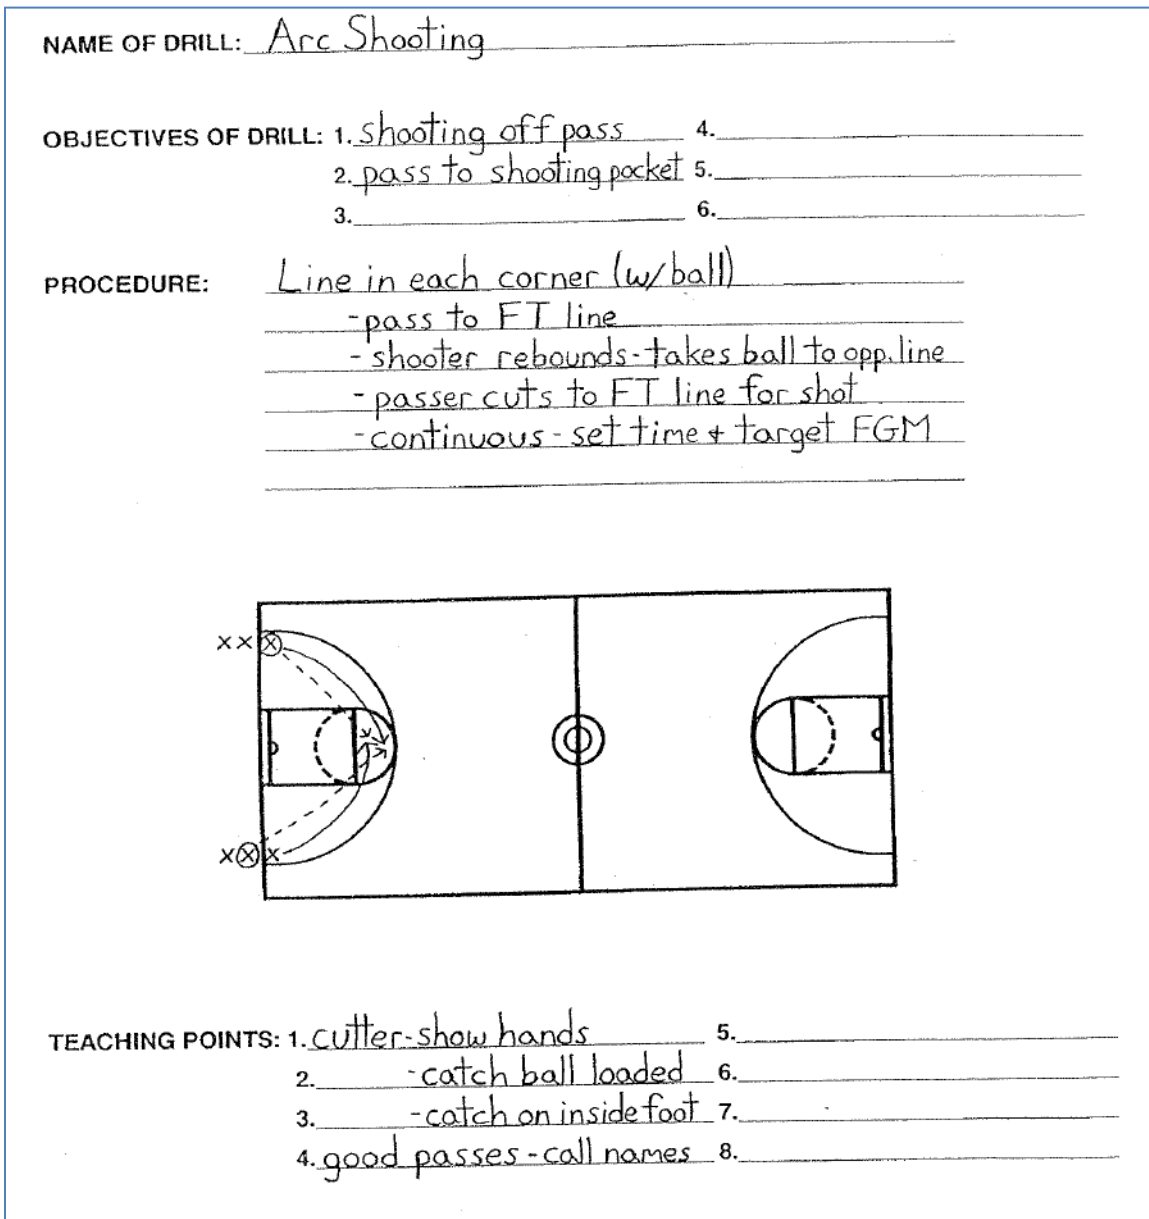 NAME OF DRILL: Arc Shooting
OBJECTIVES OF DRILL: 1. shooting off pass 4.
2. pass to shooting pocket 5.
3. 6.
PROCEDURE: Line in each corner (w/ball)
- pass to FT line
- shooter rebounds - takes ball to opp. line
- passer cuts to FT line for shot
- continuous - set time + target FGM
x x x
x x x
TEACHING POINTS: 1. cutter - show hands 5.
2. - catch ball loaded 6.
3. - catch on inside foot 7.
4. good passes - call names 8.